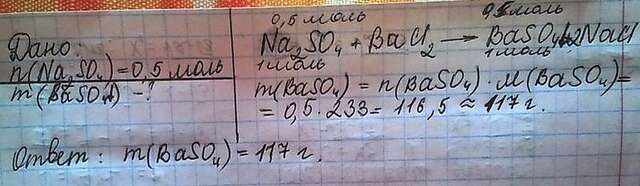 Дано:
n(Na₂SO₄)=0,5 моль
m(BaSO₄) - ?
0,5 моль 0,5 моль
Na₂SO₄ + BaCl₂ → BaSO₄↓+2NaCl
1 моль 1 моль
m(BaSO₄) = n(BaSO₄) · M(BaSO₄)=
= 0,5 · 233 = 116,5 ≈ 117 г.
Ответ: m(BaSO₄) = 117 г.